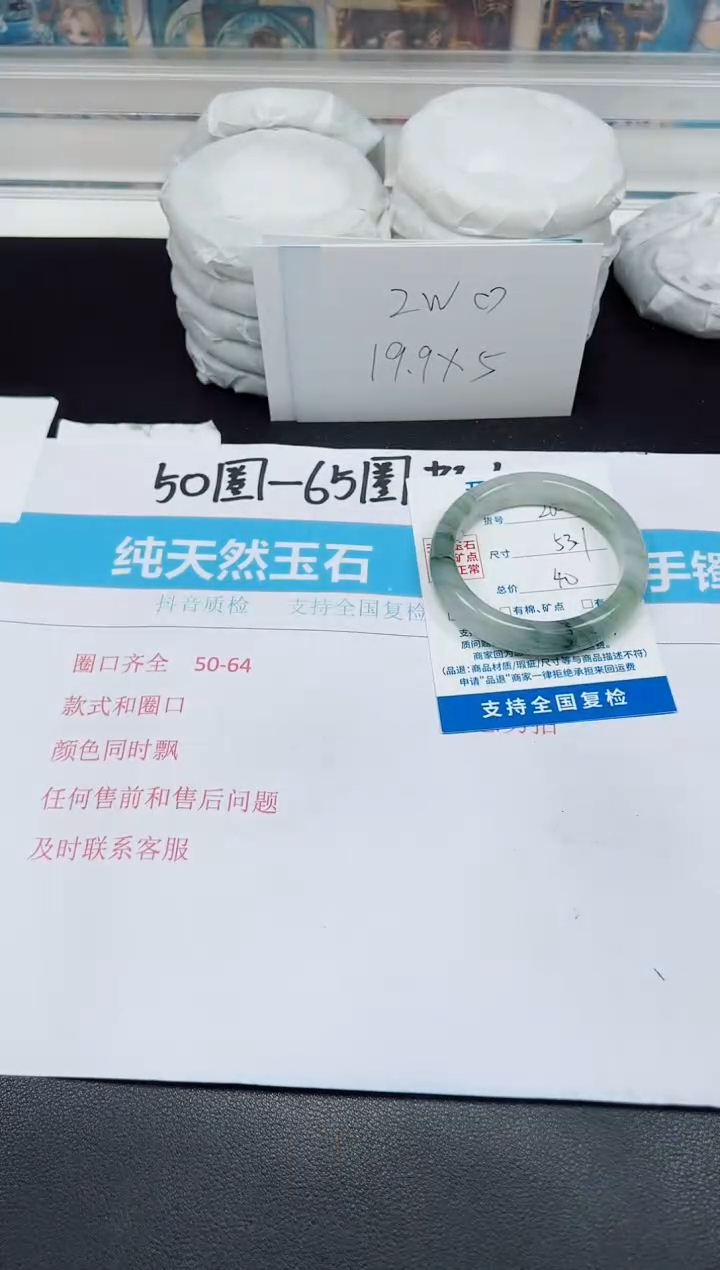 2W♡
19.9×5
50圈—65圈
纯天然玉石
手镯
抖音质检 支持全国复检
圈口齐全 50-64
款式和圈口
颜色同时飘
任何售前和售后问题
及时联系客服
货号 20
玉石
矿点
正常
尺寸 53.1
总价 40
有棉、矿点
商家回
(品退:商品材质/瑕疵/尺寸等与商品描述不符)
申请"品退"商家一律拒绝承担来回运费
支持全国复检